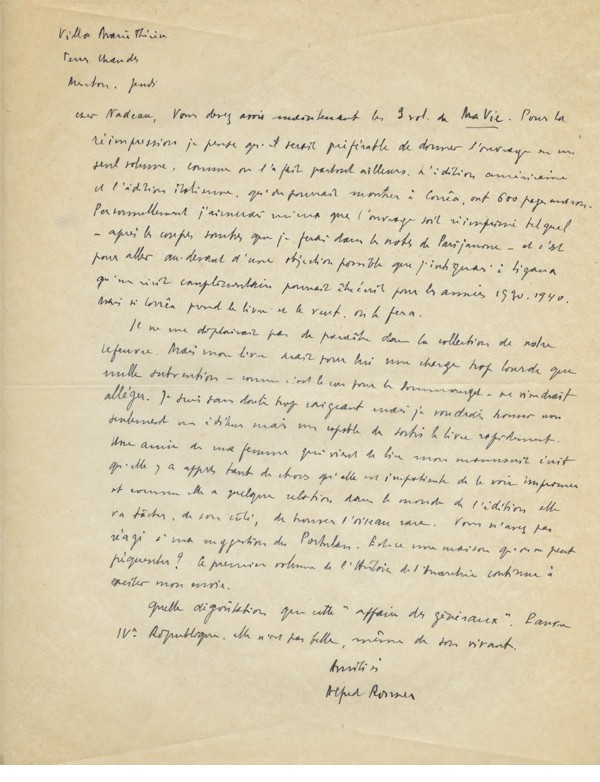 Villa Marie Thérèse
Terres Chaudes
Menton. Jeudi
Cher Nadeau, Vous devez avoir maintenant les 3 vol. de Ma Vie. Pour la
réimpression je pense qu'il serait préférable de donner l'ouvrage en un
seul volume, comme on l'a fait partout ailleurs. L'édition américaine
et l'édition italienne, qu'on pourrait montrer à Corrêa, ont 600 pages environ.
Personnellement j'aimerais mieux que l'ouvrage soit réimprimé tel quel
- après les coupes sombres que je ferai dans les notes de Parijanine - et c'est
pour aller au-devant d'une objection possible que j'
qu'un récit complémentaire pourrait être écrit pour les années 1930-1940.
Mais si Corrêa prend le livre et le veut, on le fera.
Il ne me déplairait pas de paraître dans la collection de notre
Lefeuvre. Mais mon livre serait pour lui une charge trop lourde que
nulle subvention - comme c'est le cas pour le - ne viendrait
alléger. Je suis sans doute trop exigeant mais je voudrais trouver non
seulement un éditeur mais un capable de sortir le livre rapidement.
Une amie de ma femme qui vient de lire mon manuscrit écrit
qu'elle y a appris tant de choses qu'elle est impatiente de le voir imprimer
et comme elle a quelque relation dans le monde de l'édition elle
va tâcher, de son côté, de trouver l'oiseau rare. Vous n'avez pas
réagi à ma suggestion du Portulan. Est-ce une maison qu'on ne peut
fréquenter? Ce premier volume de l'Histoire de l'Anarchie continue à
exciter mon envie.
Quelle dégoûtation que cette "affaire des généraux".
IVe République, elle n'est pas belle, même de son vivant.
Amitiés
Alfred Rosmer